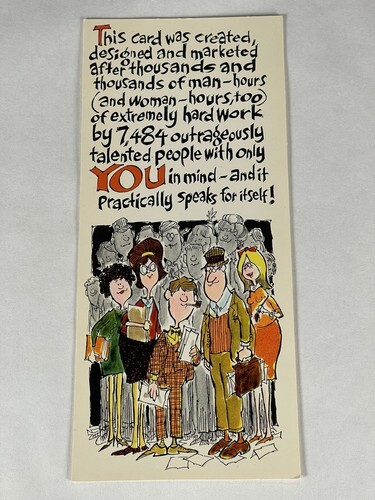 This card was created,
designed and marketed
after thousands and
thousands of man-hours
(and woman-hours, too)
of extremely hard work
by 7,484 outrageously
talented people with only
YOU in mind-and it
practically speaks for itself!